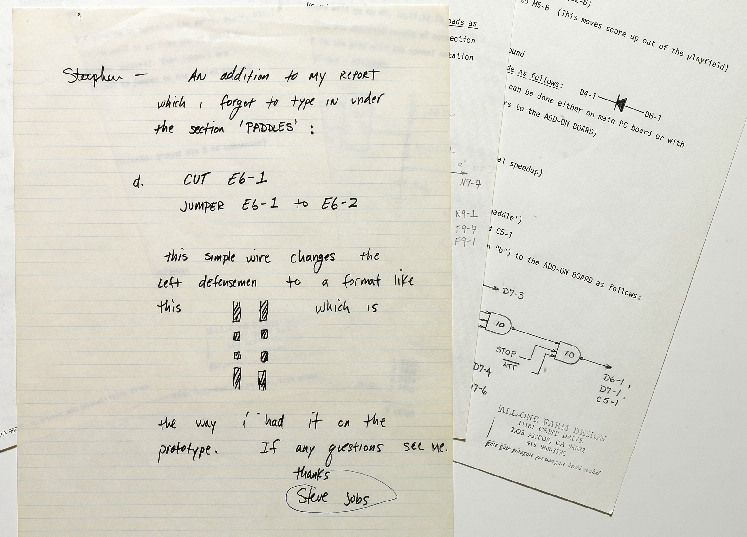 Stephen — An addition to my report
which i forgot to type in under
the section 'PADDLES' :
d. CUT E6-1
JUMPER E6-1 to E6-2
this simple wire changes the
left defensemen to a format like
this which is
the way i had it on the
prototype. If any questions see me.
thanks
Steve Jobs
ads as
ection
tation
N7-4
K9-1
F9-1
M5-6 (this moves score up out of the playfield)
ound
de As follows:
D9-1
DH-1
can be done either on main PC board or with
rs to the ADD-ON BOARD,
al speedup)
addle";
C5-1
"b"; to the ADD-ON BOARD as follows:
D7-3
10
10
STOP
ATT
D7-4
D6-1,
D7-1,
C5-1
17-6
ALL-ONE FARM DESIGN